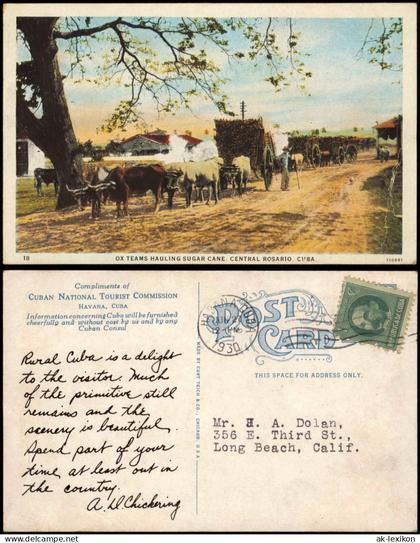 18
OX TEAMS HAULING SUGAR CANE, CENTRAL ROSARIO, CUBA.
110881
Compliments of
CUBAN NATIONAL TOURIST COMMISSION
HAVANA, CUBA
Information concerning Cuba will be furnished
cheerfully and without cost by us and by any
Cuban Consul
Rural Cuba is a delight
to the visitor. Much
of the primitive still
remains and the
scenery is beautiful.
Spend part of your
time at least out in
the country.
A. D. Chickering
MADE BY CURT TEICH & CO., CHICAGO, U.S.A.
HABANA, CUBA
1930
POST
CARD
THIS SPACE FOR ADDRESS ONLY.
Mr. H. A. Dolan,
356 E. Third St.,
Long Beach, Calif.
© www.ak-lexikon.de
ak-lexikon